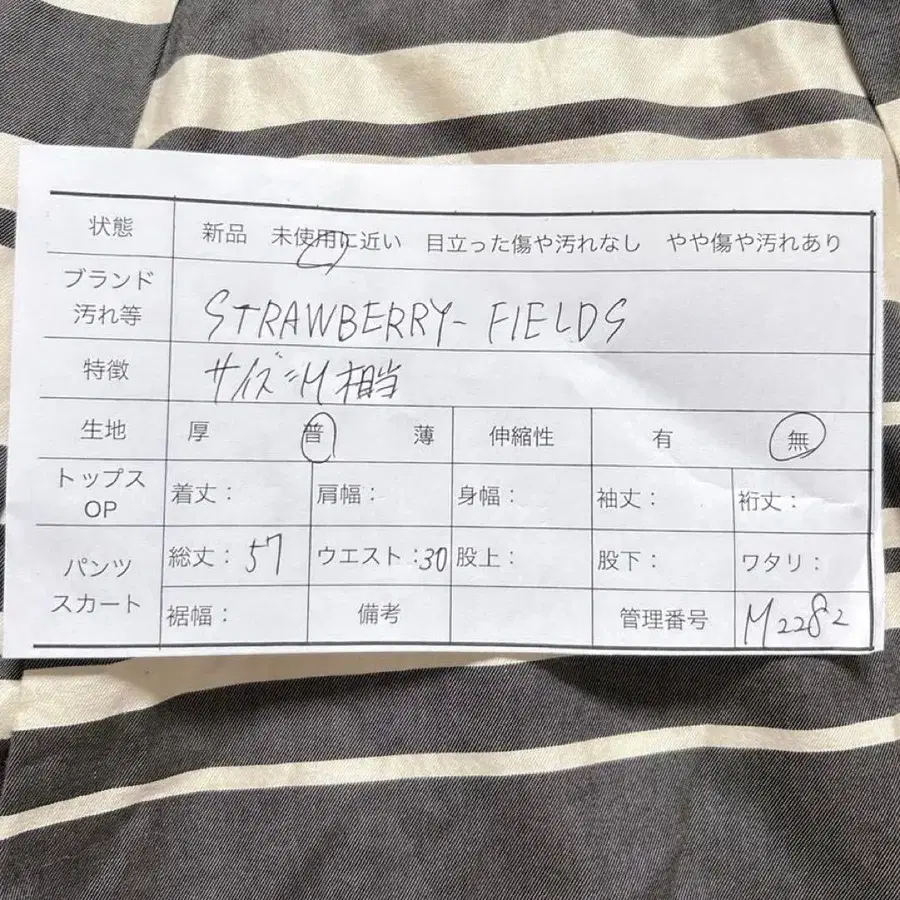 状態 新品 未使用に近い 目立った傷や汚れなし やや傷や汚れあり
ブランド
汚れ等
STRAWBERRY-FIELDS
特徴 サイズ:M相当
生地 厚 普 薄 伸縮性 有 無
トップス
OP
着丈: 肩幅: 身幅: 袖丈: 裄丈:
パンツ
スカート
総丈:57 ウエスト:30 股上: 股下: ワタリ:
裾幅: 備考 管理番号 M2282